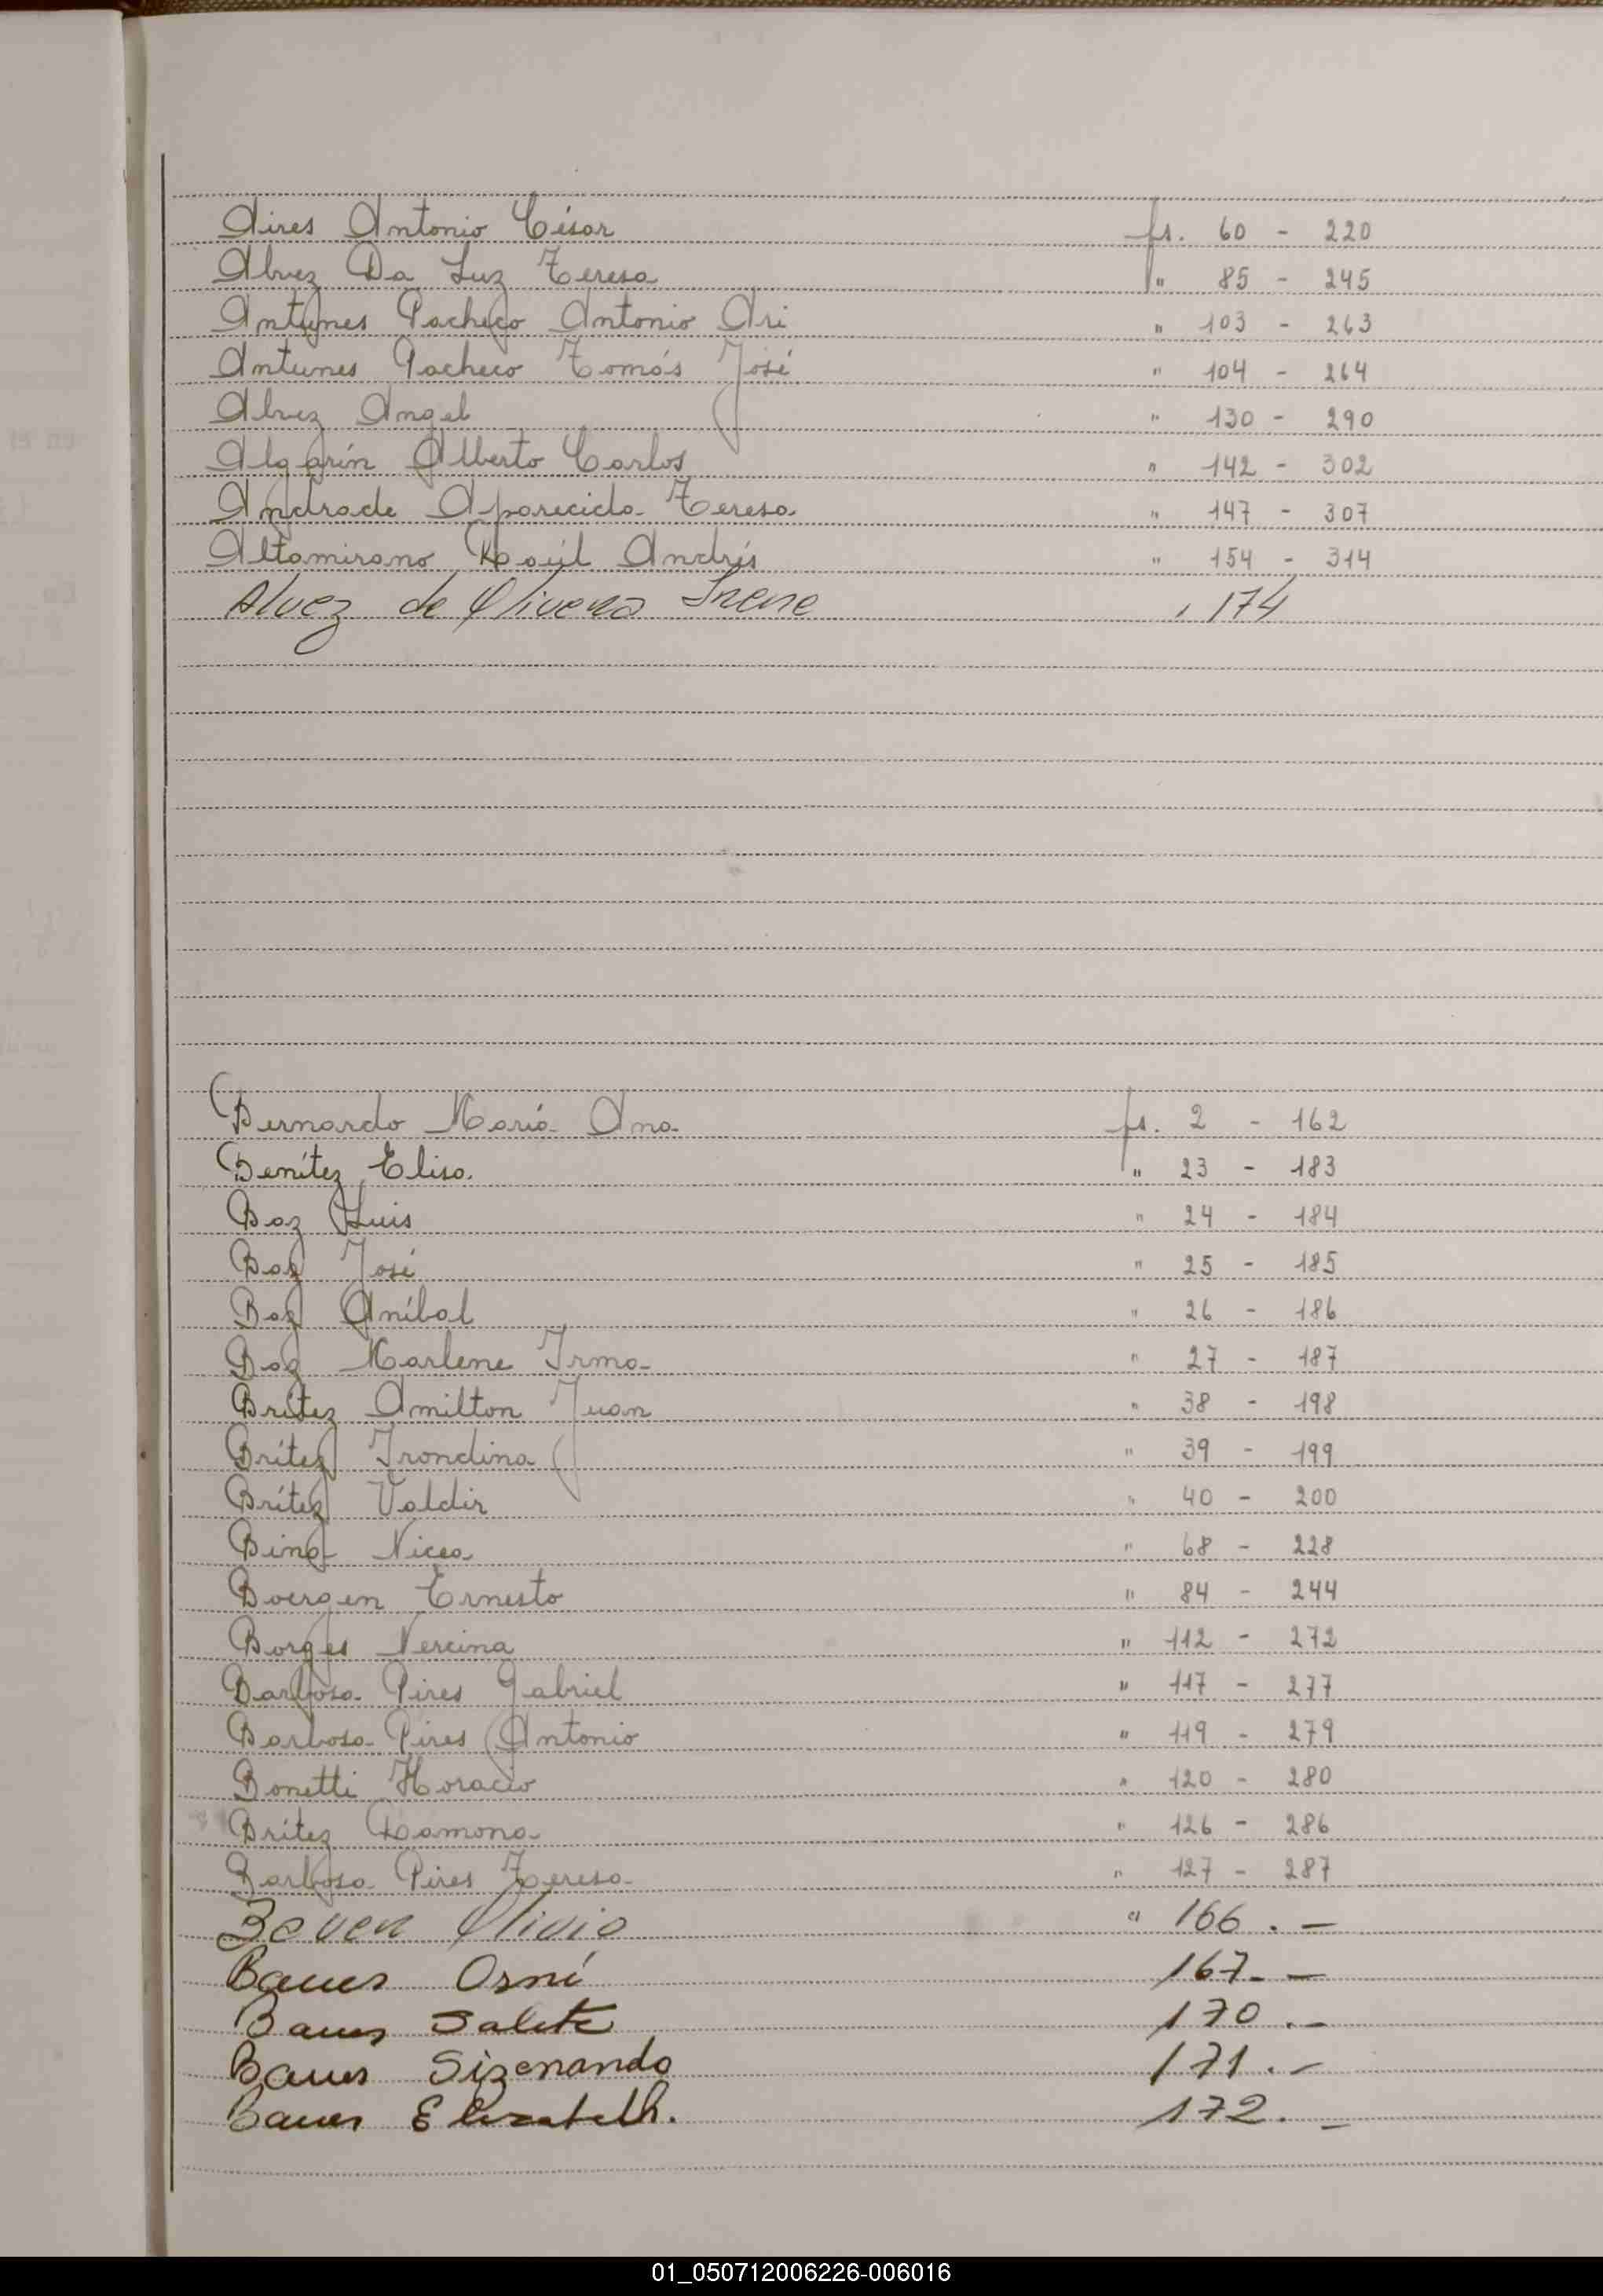 Aires Antonio César fs. 60 - 220
Alvez Da Luz Teresa " 85 - 245
Antunes Pacheco Antonio Ari " 103 - 263
Antunes Pacheco Tomás José " 104 - 264
Alvez Angel " 130 - 290
Algarín Alberto Carlos " 142 - 302
Andrade Aparecida Teresa " 147 - 307
Altamirano Raúl Andrés " 154 - 314
Alvez de Olivera Irene " 174
Bernardo María Ana fs. 2 - 162
Benítez Elisa " 23 - 183
Baz Luis " 24 - 184
Baz José " 25 - 185
Baz Aníbal " 26 - 186
Baz Marlene Irma " 27 - 187
Brítez Amilton Juan " 38 - 198
Brítez Irondina " 39 - 199
Brítez Valdir " 40 - 200
Bina Nicea " 68 - 228
Boergen Ernesto " 84 - 244
Borges Nercina " 112 - 272
Barbosa Pires Gabriel " 117 - 277
Barbosa Pires Antonio " 119 - 279
Bonetti Horacio " 120 - 280
Brítez Ramona " 126 - 286
Barbosa Pires Teresa " 127 - 287
Bauer Olivio " 166.-
Bauer Osní 167.-
Bauer Salete 170.-
Bauer Sizenando 171.-
Bauer Elizabeth. 172.-
01_050712006226-006016